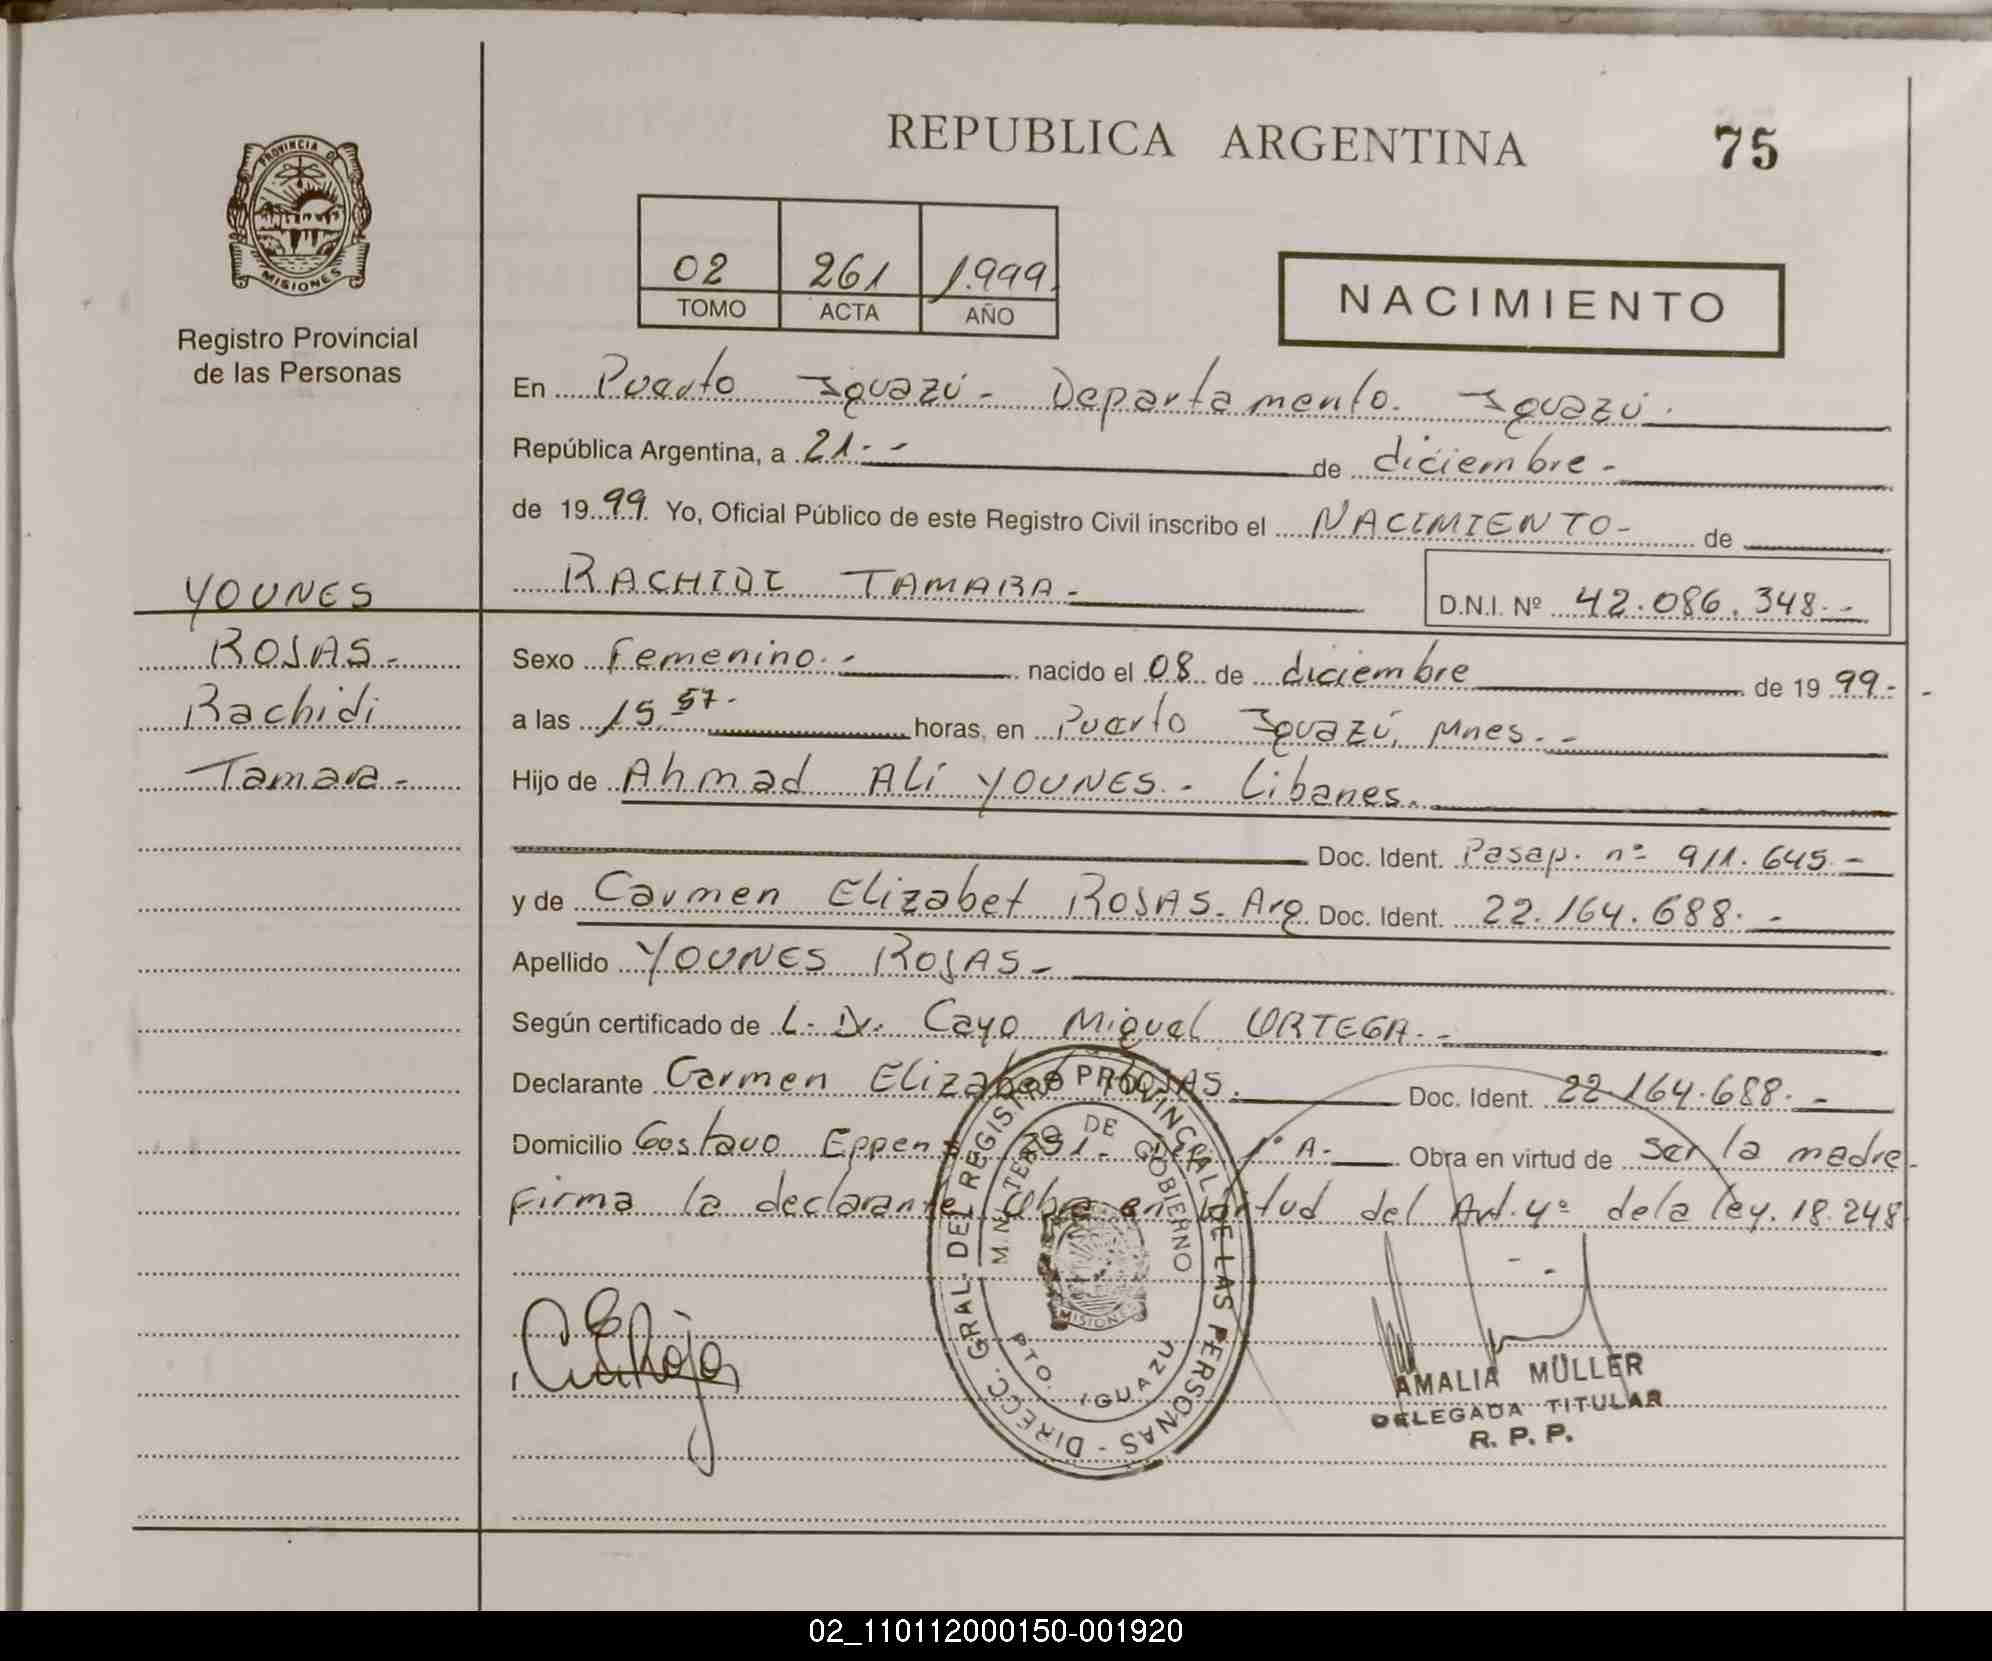 REPUBLICA ARGENTINA
75
PROVINCIA DE
MISIONES
Registro Provincial
de las Personas
02 261 1.999.
TOMO ACTA AÑO
NACIMIENTO
En Puerto Iguazú - Departamento. Iguazú.
República Argentina, a 21.- - de diciembre -
de 1999. Yo, Oficial Público de este Registro Civil inscribo el NACIMIENTO - de
RACHIDI TAMARA -
D.N.I. Nº 42.086.348.--
YOUNES
ROJAS -
Rachidi
Tamara -
Sexo Femenino.- nacido el 08 de diciembre de 19 99.- -
a las 15 57.- horas, en Puerto Iguazú, Mnes. -
Hijo de Ahmad Ali YOUNES - Libanes.
Doc. Ident. Pasap. nº 911.645.-
y de Carmen Elizabet ROJAS. Arg Doc. Ident. 22.164.688. -
Apellido YOUNES ROJAS -
Según certificado de L. Dr. Cayo Miguel ORTEGA. -
Declarante Carmen Elizabet ROJAS. Doc. Ident. 22.164.688. -
Domicilio Gostavo Eppens 1º A.- Obra en virtud de ser la madre -
Firma la declarante Obra en virtud del Art. 4º de la ley. 18.248
- -
DIRECC. GRAL. DEL REGISTRO PROVINCIAL DE LAS PERSONAS -
MINISTERIO DE GOBIERNO
MISIONES
PTO. IGUAZU
AMALIA MÜLLER
DELEGADA TITULAR
R. P. P.
02_110112000150-001920